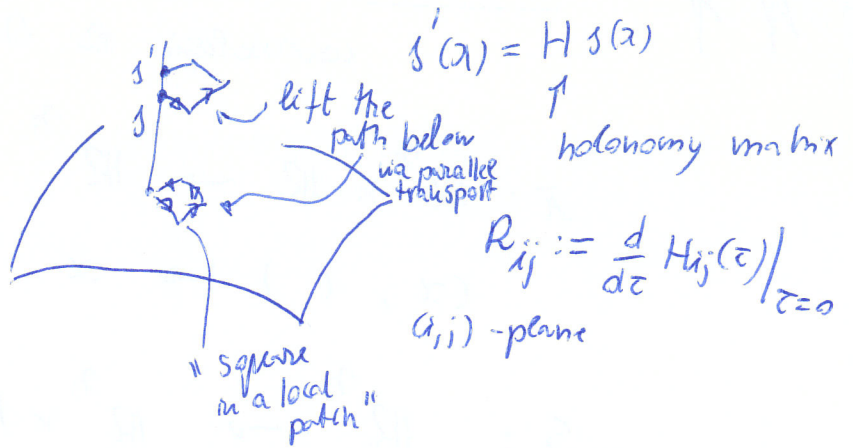 s'
s
lift the
path below
via parallel
transport
"square
in a local
patch"
s'(x) = H s(x)
↑
holonomy matrix
R_{ij} := d/dτ H_{ij}(τ)|_{τ=0}
(i,j)-plane